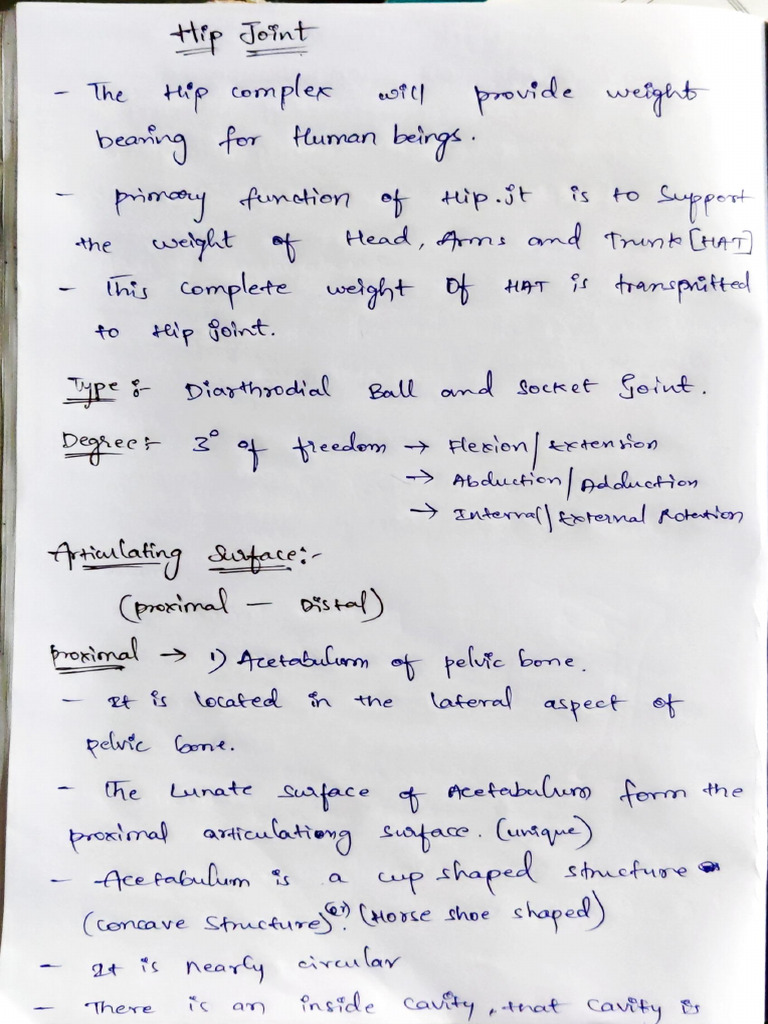 Hip Joint
- The Hip complex will provide weight
bearing for Human beings.
- primary function of Hip.jt is to Support
the weight of Head, Arms and Trunk [HAT]
- This complete weight of HAT is transpnitted
to Hip joint.
Type :- Diarthrodial Ball and Socket Joint.
Degree:- 3° of freedom → Flexion/Extension
→ Abduction/Adduction
→ Internal/External Rotation
Articulating Surface:-
(proximal - Distal)
proximal → 1) Acetabulum of pelvic bone.
- It is located in the lateral aspect of
pelvic bone.
- The Lunate surface of Acetabulum form the
proximal articulationg surface. (unique)
- Acetabulum is a cup shaped structure
(concave structure) (or) (Horse shoe shaped)
- It is nearly circular
- There is an inside cavity, that cavity is